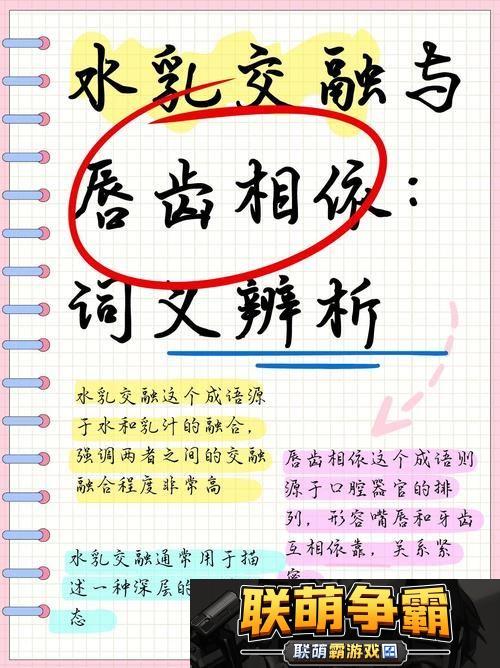 水乳交融与
唇齿相依：
词义辨析
水乳交融这个成语源
于水和乳汁的融合，
强调两者之间的交融
融合程度非常高
唇齿相依这个成语则
源于口腔器官的排
列，形容嘴唇和牙齿
互相依靠，关系紧
水乳交融通常用于描
述一种深层的
态
联萌争霸
联萌霸游戏网